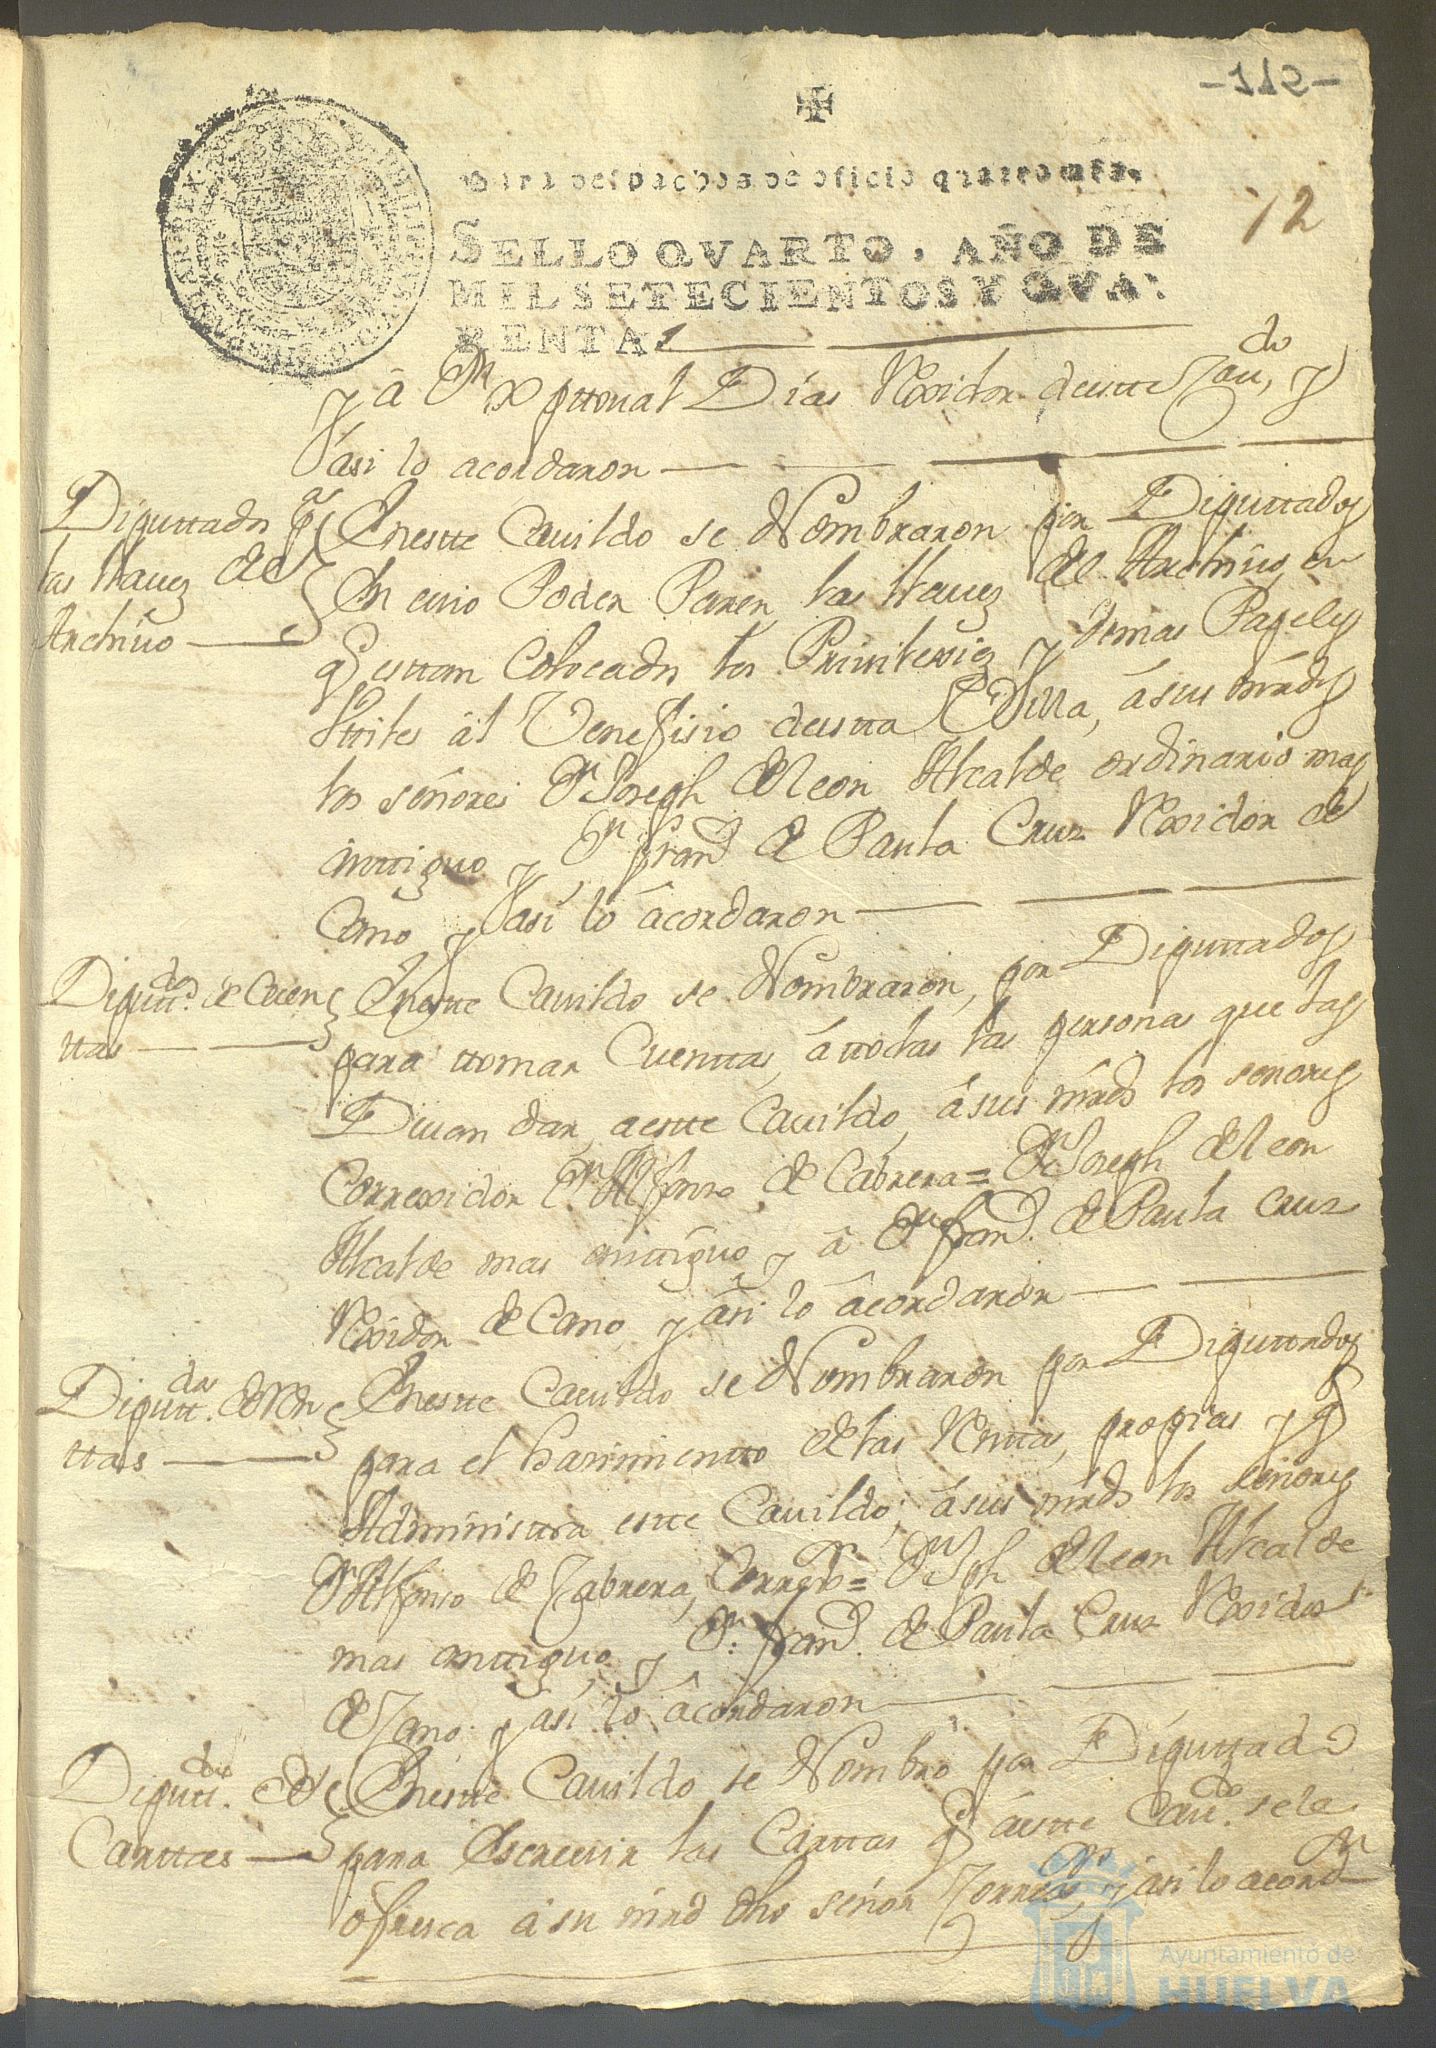 -115-
Para despachos de oficio quatro mrs.
12
SELLO QVARTO, AÑO DE
MIL SETECIENTOS Y QVA:
RENTA.
y â Dn Xptoual Días Rexidor deste Caudo, y
asi lo acordaron
Diputtados pa
las llaues del
Archiuo
Enestte Cauildo se Nombraron por Diputtados
En cuio Poder Paren las llaues del Archiuo, en
q esttan Colocados los Priuilexios y demas Papeles
Vtiles al Venefisio de estta Villa, á sus mrds
los señores Dn Joseph de leon Alcalde ordinario mas
anttiguo y Dn Franco de Paula Cruz Rexidor de
Cano y asi lo âcordaron
Diputtdos de Cuen
ttas
Enestte Cauildo se Nombraron, por Diputtados
para ttomar Cuenttas, á ttodas las personas que las
Deuan dar, a estte Cauildo, á sus mrds los señores
Correxidor Dn Alfonso de Cabrera= Dn Joseph de leon
Alcalde mas anttiguo y â Dn Franco de Paula Cruz
Rexidor de Cano y asi lo âcordaron
Diputtdos de Ren
ttas
Enestte Cauildo se Nombraron por Diputtados
para el hasimientto de las Renttas, propias y q
Administra estte Cauildo, á sus mrds los señores
Dn Alfonso de Cabrera, Corregor= Dn Jph de leon Alcalde
mas anttiguo y Dn Franco de Paula Cruz Rexidor
de Cano y asi lo âcordaron
Diputtdo de
Carttas
Enestte Cauildo se Nombró por Diputtado
para Escreuir las Carttas q á estte Caudo se le
ofresca á su mrd dho señor Corror, y asi lo acordn
Ayuntamiento de
HUELVA